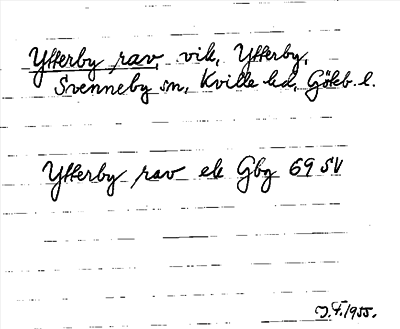 Ytterby rav, vik, Ytterby,
Svenneby sn, Kville hd, Göteb. l.
Ytterby rav ek Gbg 69 SV
J.F. 1955.